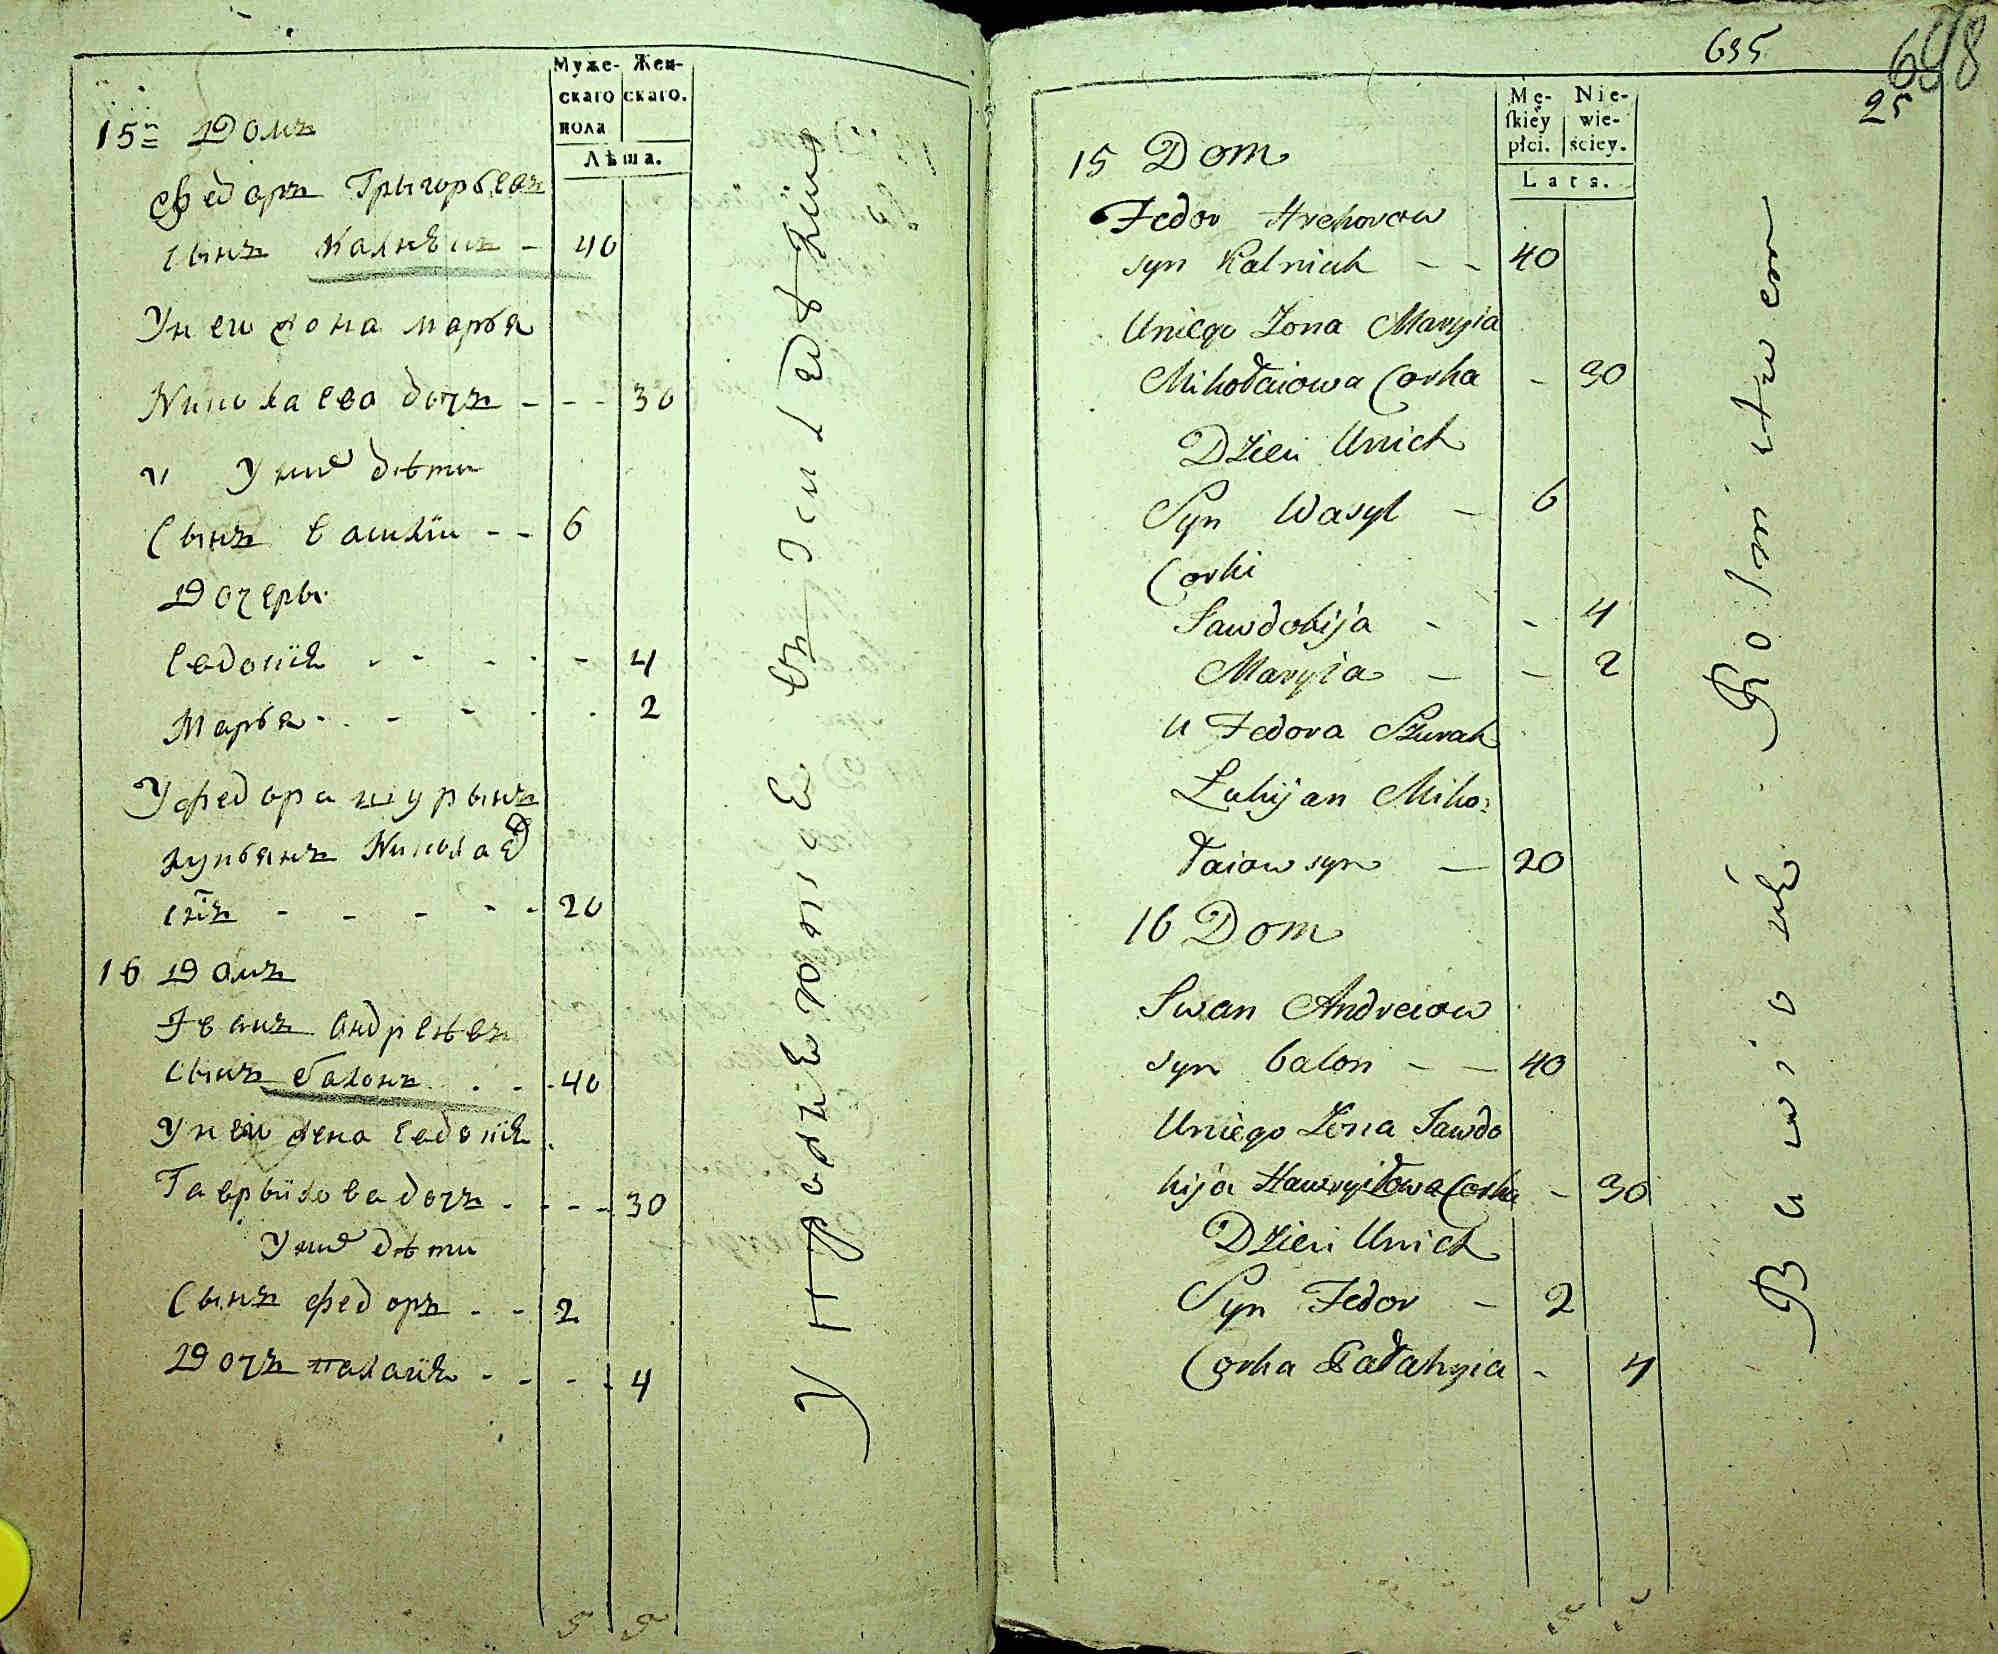 Муже- Жен-
скаго скаго.
пола
Лѣта.
15й Домъ
Федоръ Грыгорьевъ
сынъ Калнѣкъ - 40
У нево жена Марья
Николаева дочь - - - 30
У них дѣти
Сынъ Василїи - - 6
Дочеры
Евдокїѣ - - - - - 4
Марья - - - - - 2
У Федора шурынъ
Лукьянъ Николаев
снъ - - - - - 20
16 Домъ
Іванъ Андрѣевъ
сынъ Балонъ - - - 40
У нево жена Евдокїѣ
Гаврыилова дочь - - - - 30
У них дѣти
Сынъ Федоръ - - 2
Дочь Палаиѣ - - - - 4
5 5
635
698
25
Mę- Nie-
skiey wie-
płci. ściey.
Lata.
15 Dom
Fedor Hrehorow
syn Kalniak - - 40
Uniego Zona Maryia
Mikołaiowa Corka - 30
Dzieci Unich
Syn Wasyl - 6
Corki
Jawdokija - - 4
Maryia - - 2
U Fedora Szurak
Łukijan Miko-
łaiow syn - 20
16 Dom
Iwan Andreiow
syn Balon - - 40
Uniego Zona Jawdo
kija Hawryiłowa Corka - 30
Dzieci Unich
Syn Fedor - 2
Corka Pałahyia - 4
5 5